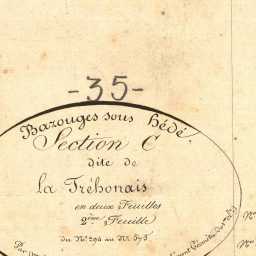 -35-
Bazouges sous hédé.
Section C
dite de
La Tréhonais
en deux Feuilles
2ème Feuille
du N° 294 au N°